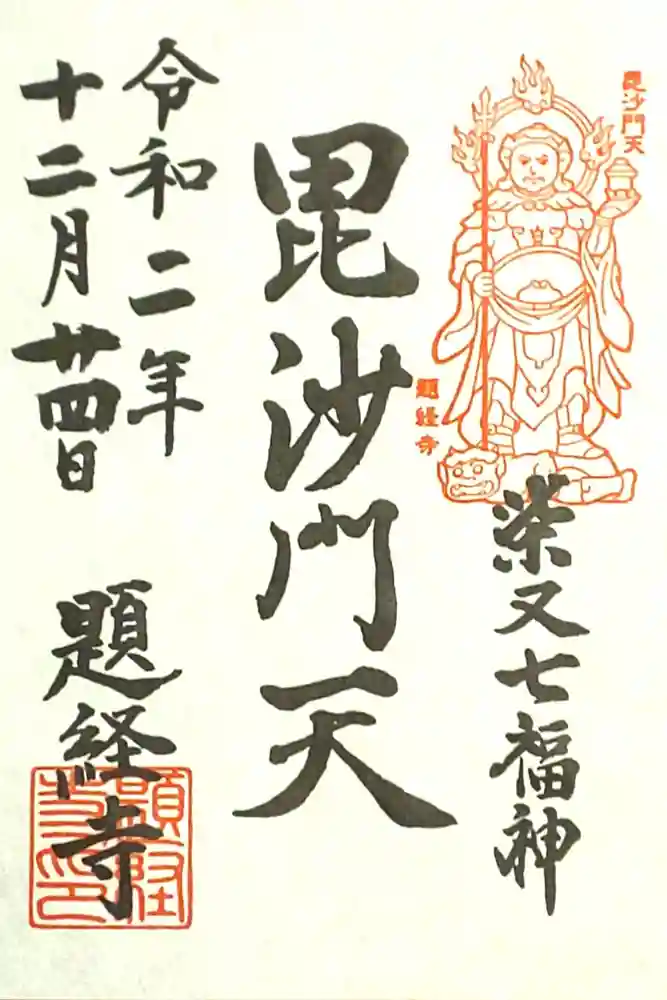 毘沙門天
題経寺
柴又七福神
毘沙門天
令和二年
十二月廿四日
題経寺
題経寺印